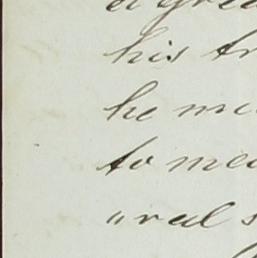 a grea
his tr
he mu
to mea
"ral s